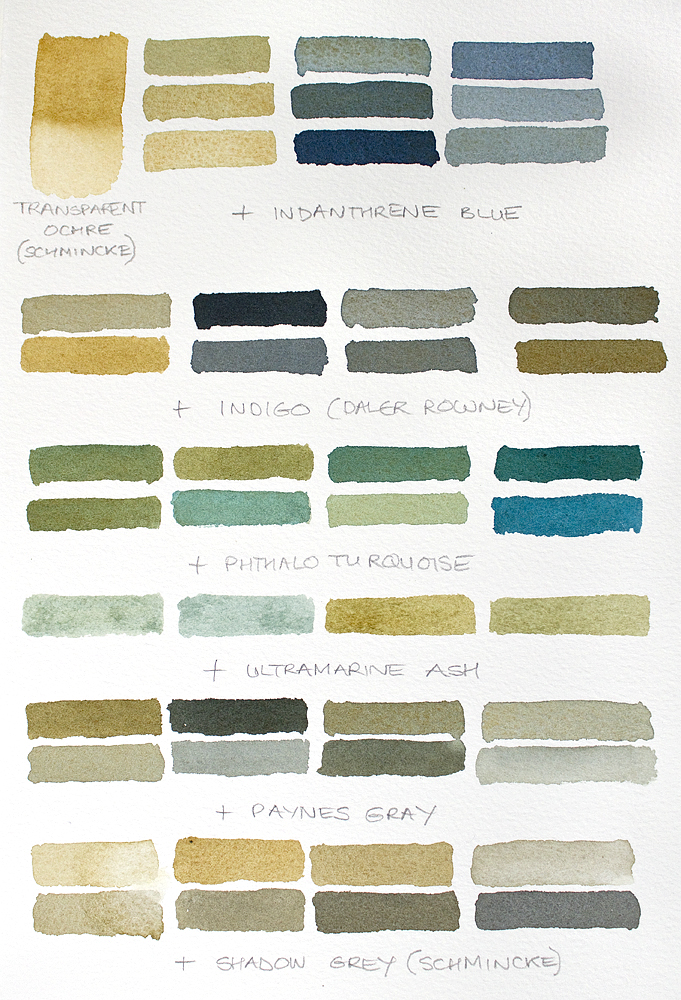 TRANSPARENT
OCHRE
(SCHMINCKE)
+ INDANTHRENE BLUE
+ INDIGO (DALER ROWNEY)
+ PHTHALO TURQUOISE
+ ULTRAMARINE ASH
+ PAYNES GRAY
+ SHADOW GREY (SCHMINCKE)